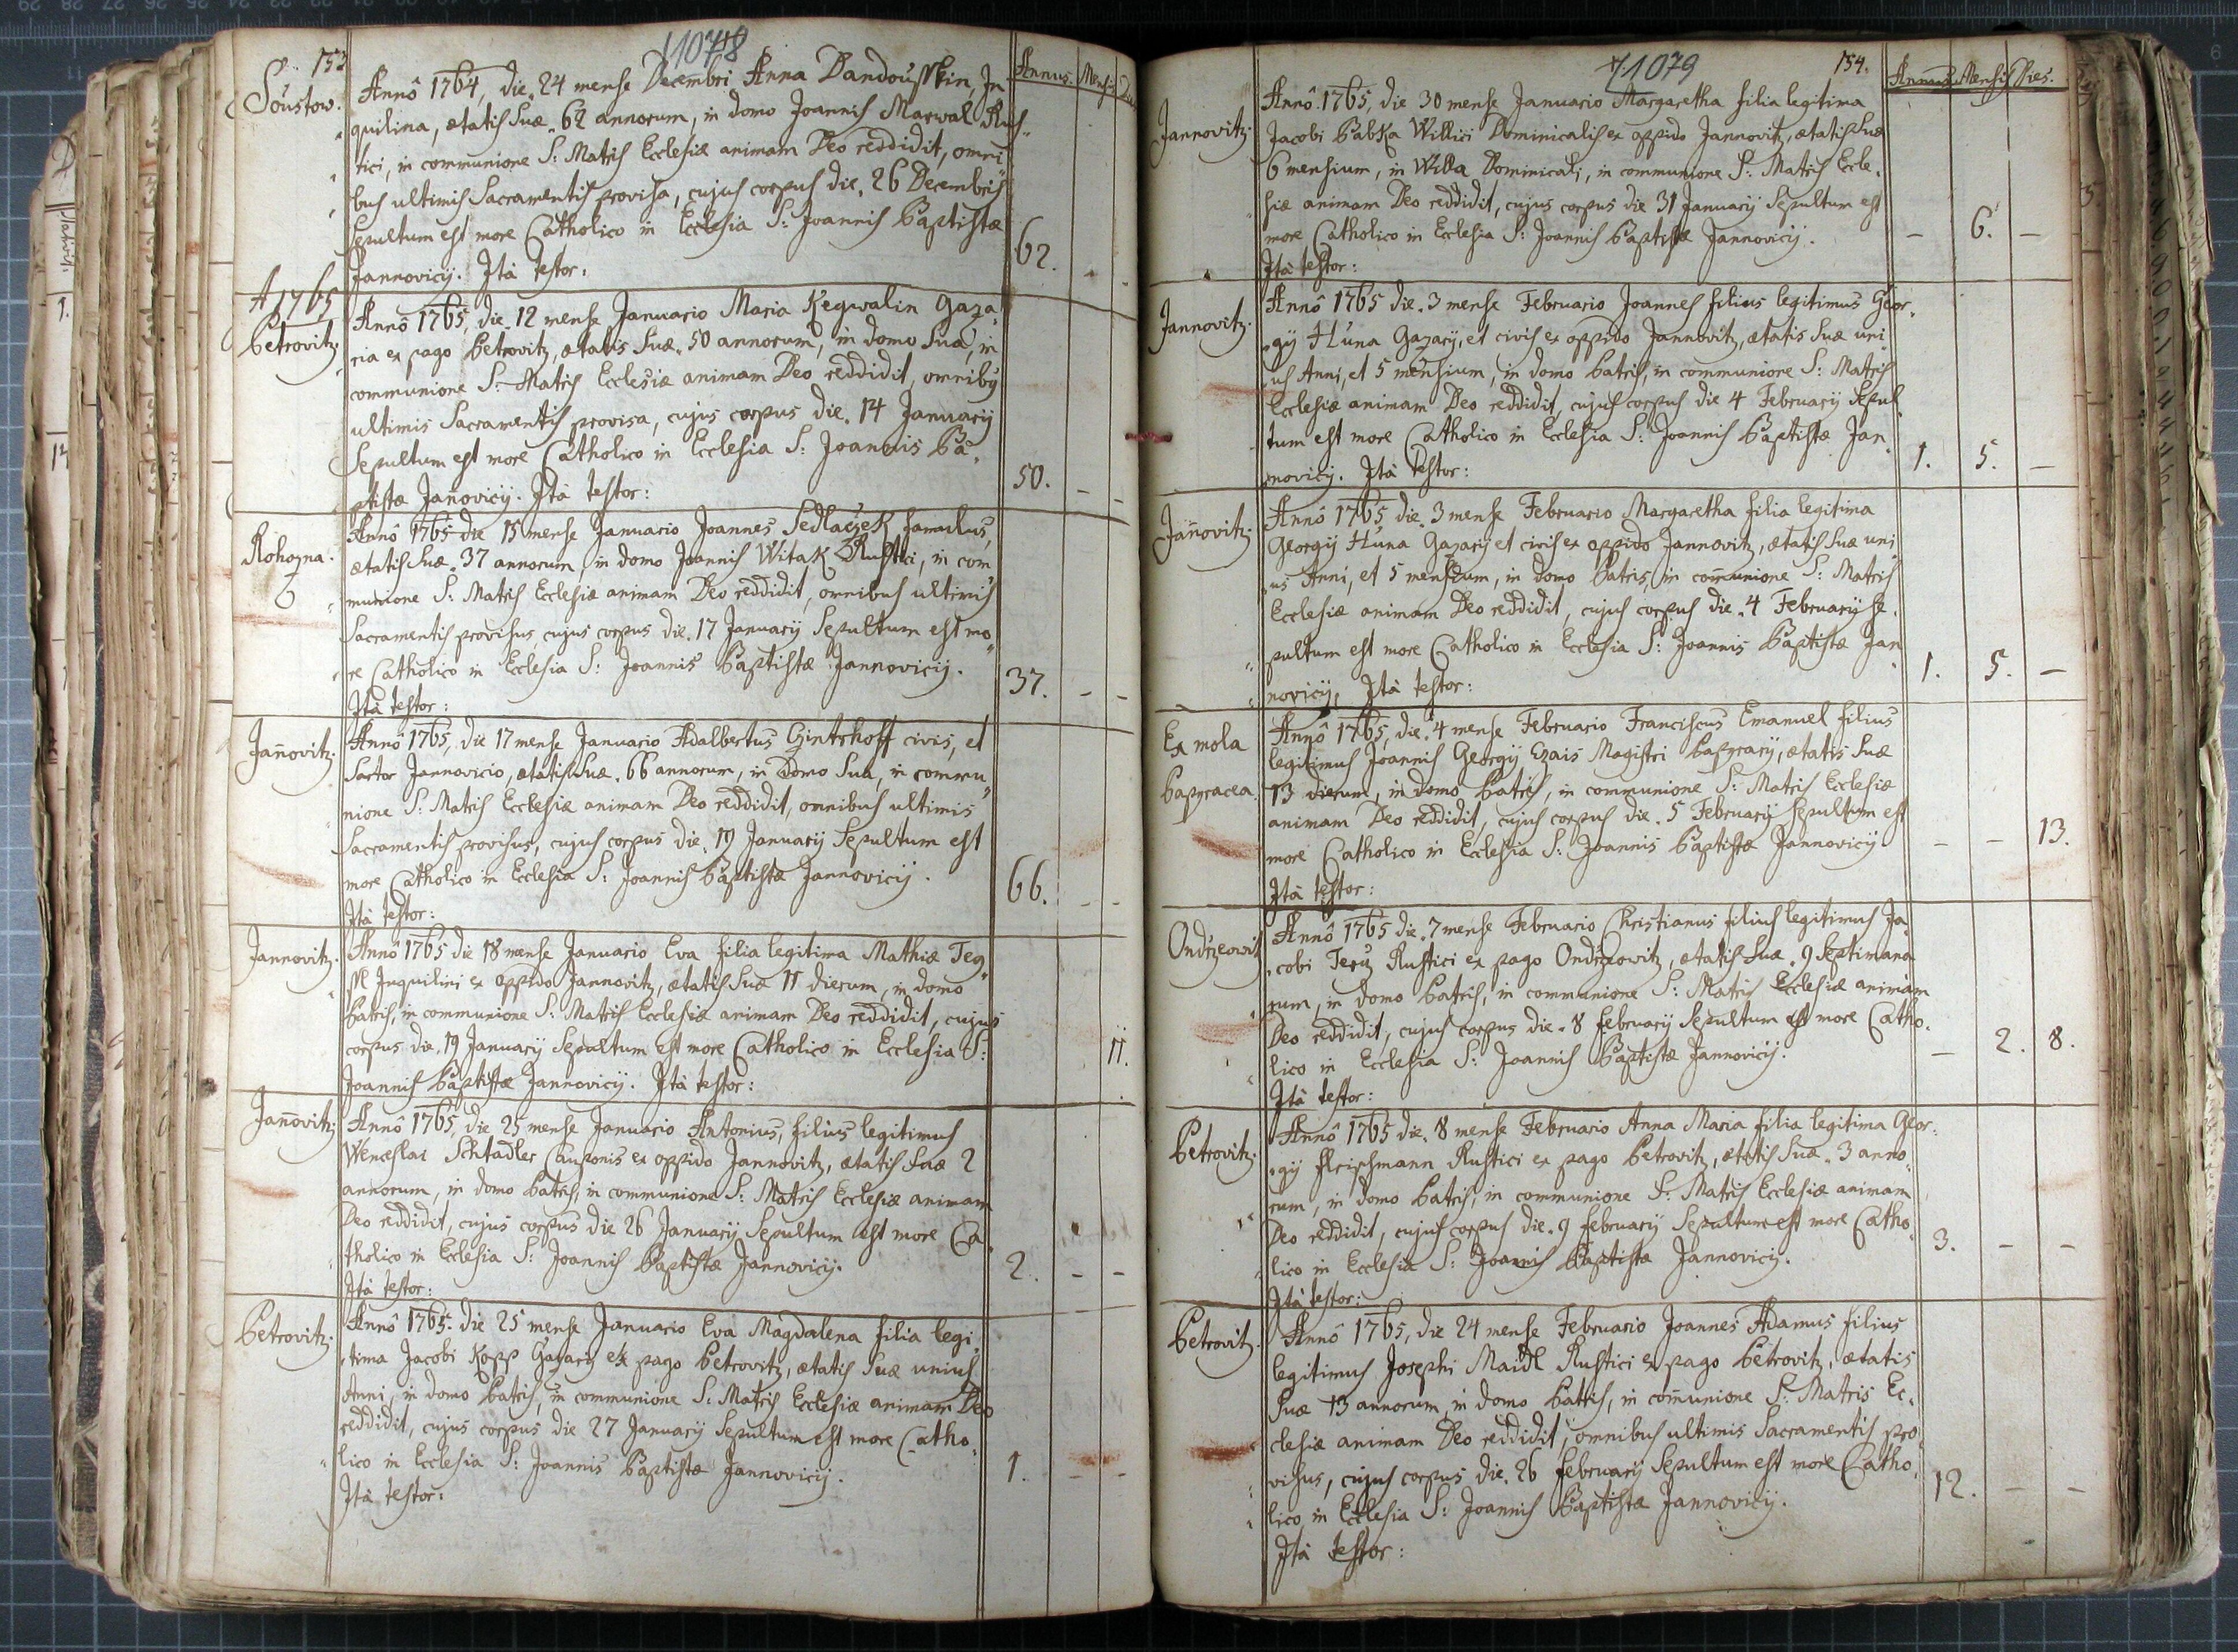 153
1078
Annus. Mensis Dies
Soustow.
Annô 1764, die 24 mense Decembri Anna Dandousskin, In
quilina, ætatis Suæ 62 annorum, in domo Joannis Marwal Rus¸
tici, in communione S: Matris Ecclesiæ animam Deo reddidit, omni
bus ultimis Sacramentis provisa, cujus corpus die 26 Decembris
Sepultum est more Catholico in Ecclesia S: Joannis Baptistæ
Jannovicij. Ità testor:
62.
A 1765
Petrovitz.
Annô 1765, die 12 mense Januario Maria Kegwalin Gaza¸
ria ex pago Petrovitz, ætatis Suæ 50 annorum, in domo Sua, in
communione S: Matris Ecclesiæ animam Deo reddidit, omnibus
ultimis Sacramentis provisa, cujus corpus die 14 Januarij
Sepultum est more Catholico in Ecclesia S: Joannis Ba¸
ptistæ Jan̄ovicij. Ità testor:
50. - -
Rohozna.
Annô 1765 die 15 mense Januario Joannes Sedlaczek famulus,
ætatis Suæ 37 annorum, in domo Joannis Witak Rustici, in com
munione S: Matris Ecclesiæ animam Deo reddidit, omnibus ultimis
Sacramentis provisus, cujus corpus die 17 Januarij Sepultum est mo
re Catholico in Ecclesia S: Joannis Baptistæ Jannovicij.
Ità testor:
37. - -
Jan̄ovitz.
Annô 1765, die 17 mense Januario Adalbertus Gintrhoff civis, et
Sartor Jannovicio, ætatis Suæ 66 annorum, in Domo Sua, in commu
nione S: Matris Ecclesiæ animam Deo reddidit, omnibus ultimis
Sacramentis provisus, cujus corpus die 19 Januarij Sepultum est
more Catholico in Ecclesia S: Joannis Baptistæ Jannovicij.
Ità testor:
66. - -
Jannovitz.
Annô 1765 die 18 mense Januario Eva filia legitima Mathiæ Teg¸
sl Inquilini ex oppido Jannovitz, ætatis Suæ 11 dierum, in domo
Patris, in communione S: Matris Ecclesiæ animam Deo reddidit, cujus
corpus die 19 Januarij Sepultum est more Catholico in Ecclesia S:
Joannis Baptistæ Jannovicij. Ità testor:
11.
Jan̄ovitz.
Annô 1765, die 25 mense Januario Antonius, filius legitimus
Wenceslai Schtadler Cauponis ex oppido Jannovitz, ætatis Suæ 2
annorum, in domo Patris, in communione S: Matris Ecclesiæ animam
Deo reddidit, cujus corpus die 26 Januarij Sepultum est more Ca
tholico in Ecclesia S: Joannis Baptistæ Jannovicij.
Ità testor:
2. - -
Petrovitz.
Annô 1765. die 25 mense Januario Eva Magdalena filia legi¸
tima Jacobi Kopp Gazarij ex pago Petrovitz, ætatis Suæ unius
Anni, in domo Patris, in communione S: Matris Ecclesiæ animam Deo
reddidit, cujus corpus die 27 Januarij Sepultum est more Catho¸
lico in Ecclesia S: Joannis Baptistæ Jannovicij.
Ità testor:
1. - -
1079
154.
Annus. Mensis Dies.
Jannovitz.
Annô 1765, die 30 mense Januario Margaretha filia legitima
Jacobi Babka Willici Dominicalis ex oppido Jannovitz, ætatis Suæ
6 mensium, in Willa Dominicali, in communione S: Matris Eccle¸
siæ animam Deo reddidit, cujus corpus die 31 Januarij Sepultum est
more Catholico in Ecclesia S: Joannis Baptistæ Jannovicij.
Ità testor:
- 6. -
Jannovitz.
Annô 1765 die 3 mense Februario Joannes filius legitimus Geor¸
gij Húna Gazarij, et civis ex oppido Jannovitz, ætatis Suæ uni
us Anni, et 5 mensium, in domo Patris, in communione S: Matris
Ecclesiæ animam Deo reddidit, cujus corpus die 4 Februarij Sepul
tum est more Catholico in Ecclesia S: Joannis Baptistæ Jan
novicij. Ità testor:
1. 5. -
Jan̄ovitz.
Annô 1765 die 3 mense Februario Margaretha filia legitima
Georgij Húna Gazarij et civis ex oppido Jannovitz, ætatis Suæ uni
us Anni, et 5 mensium, in domo Patris, in com̄unione S: Matris
Ecclesiæ animam Deo reddidit, cujus corpus die 4 Februarij Se¸
pultum est more Catholico in Ecclesia S: Joannis Baptistæ Jan
novicij, Ità testor:
1. 5. -
Ex mola
Papyracea
Annô 1765, die 4 mense Februario Franciscus Emanuel filius
legitimus Joannis Georgij Ezais Magistri Papyrarij, ætatis Suæ
13 dierum, in domo Patris, in communione S: Matris Ecclesiæ
animam Deo reddidit, cujus corpus die 5 Februarij Sepultum est
more Catholico in Ecclesia S: Joannis Baptistæ Jannovicij
Ità testor:
- - 13.
Ondrzeowitz
Annô 1765 die 7 mense Februario Christianus filius legitimus Ja¸
cobi Rustici ex pago Ondrzeowitz, ætatis Suæ 9 Septimana
rum, in domo Patris, in communione S: Matris Ecclesiæ animam
Deo reddidit, cujus corpus die 8 februarij Sepultum est more Catho¸
lico in Ecclesia S: Joannis Baptistæ Jannovicij.
Ità testor:
- 2. 8.
Petrovitz.
Annô 1765 die 8 mense Februario Anna Maria filia legitima Geor¸
gij fleischmann Rustici ex pago Petrovitz, ætatis Suæ 3 anno¸
rum, in domo Patris, in communione S: Matris Ecclesiæ animam
Deo reddidit, cujus corpus die 9 februarij Sepultum est more Catho¸
lico in Ecclesia S: Joannis Baptistæ Jannovicij.
Ità testor:
3. - -
Petrovitz.
Annô 1765, die 24 mense Februario Joannes Adamus filius
legitimus Josephi Maidl Rustici ex pago Petrovitz, ætatis
Suæ 13 annorum, in domo Patris, in com̄unione S: Matris Ec¸
clesiæ animam Deo reddidit, omnibus ultimis Sacramentis pro
visus, cujus corpus die 26 februarij Sepultum est more Catho¸
lico in Ecclesia S: Joannis Baptistæ Jannovicij.
Ità testor:
12. - -